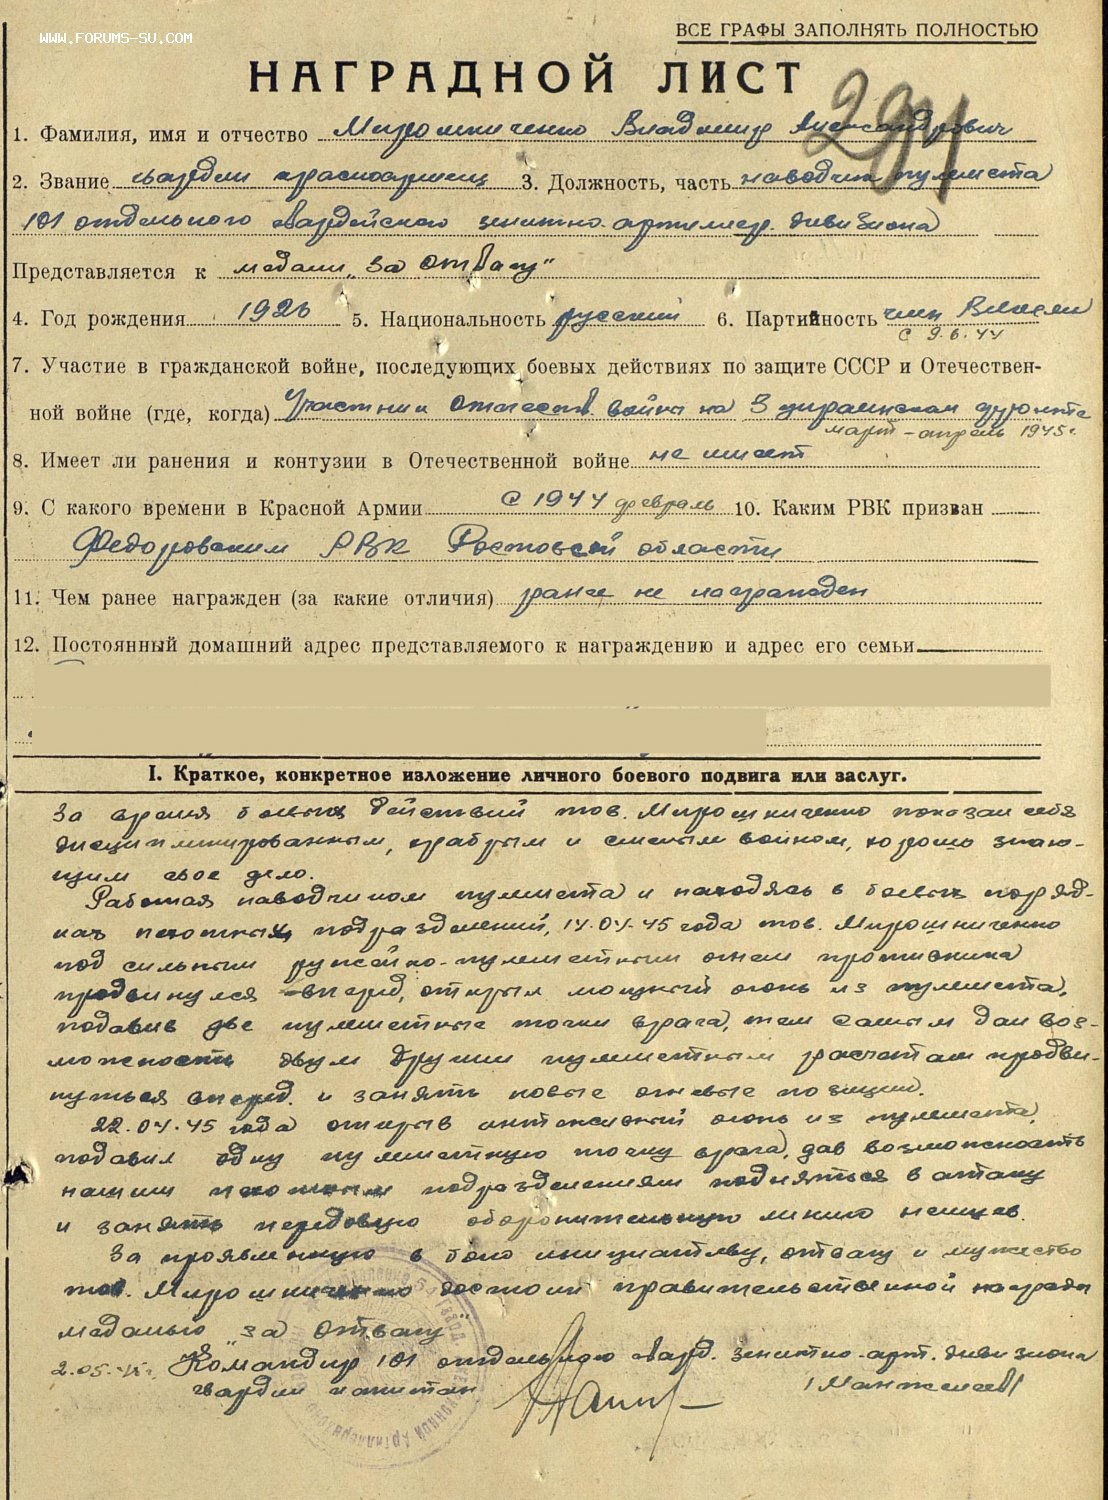 WWW.FORUMS-SU.COM
ВСЕ ГРАФЫ ЗАПОЛНЯТЬ ПОЛНОСТЬЮ
НАГРАДНОЙ ЛИСТ
1. Фамилия, имя и отчество Мирошниченко Владимир Александрович
2. Звание гвардии красноармеец 3. Должность, часть наводчик пулемета
101 отдельного гвардейского зенитно-артиллер. дивизиона
Представляется к медали „За отвагу"
4. Год рождения 1926 5. Национальность русский 6. Партийность член ВЛКСМ
с 9.6.44
7. Участие в гражданской войне, последующих боевых действиях по защите СССР и Отечествен-
ной войне (где, когда) Участник Отечеств. войны на 3 украинском фронте
март-апрель 1945г.
8. Имеет ли ранения и контузии в Отечественной войне не имеет
9. С какого времени в Красной Армии с 1944 февраль 10. Каким РВК призван
Федоровским РВК Ростовской области
11. Чем ранее награжден (за какие отличия) ранее не награжден
12. Постоянный домашний адрес представляемого к награждению и адрес его семьи
I. Краткое, конкретное изложение личного боевого подвига или заслуг.
За время боевых действий тов. Мирошниченко показал себя
дисциплинированным, храбрым и смелым воином, хорошо знаю-
щим свое дело.
Работая наводчиком пулемета и находясь в боевых поряд-
ках пехотных подразделений, 14.04.45 года тов. Мирошниченко
под сильным ружейно-пулеметным огнем противника
продвинулся вперед, открыл мощный огонь из пулемета,
подавив две пулеметные точки врага, тем самым дал воз-
можность двум другим пулеметным расчетам продви-
нуться вперед и занять новые огневые позиции.
22.04.45 года открыв интенсивный огонь из пулемета,
подавил одну пулеметную точку врага, дав возможность
нашим пехотным подразделениям подняться в атаку
и занять передовую оборонительную линию немцев.
За проявленную в бою инициативу, отвагу и мужество
тов. Мирошниченко достоин правительственной награды
медалью „За отвагу"
2.05.45г. Командир 101 отдельного гвард. зенитно-арт. дивизиона
гвардии капитан